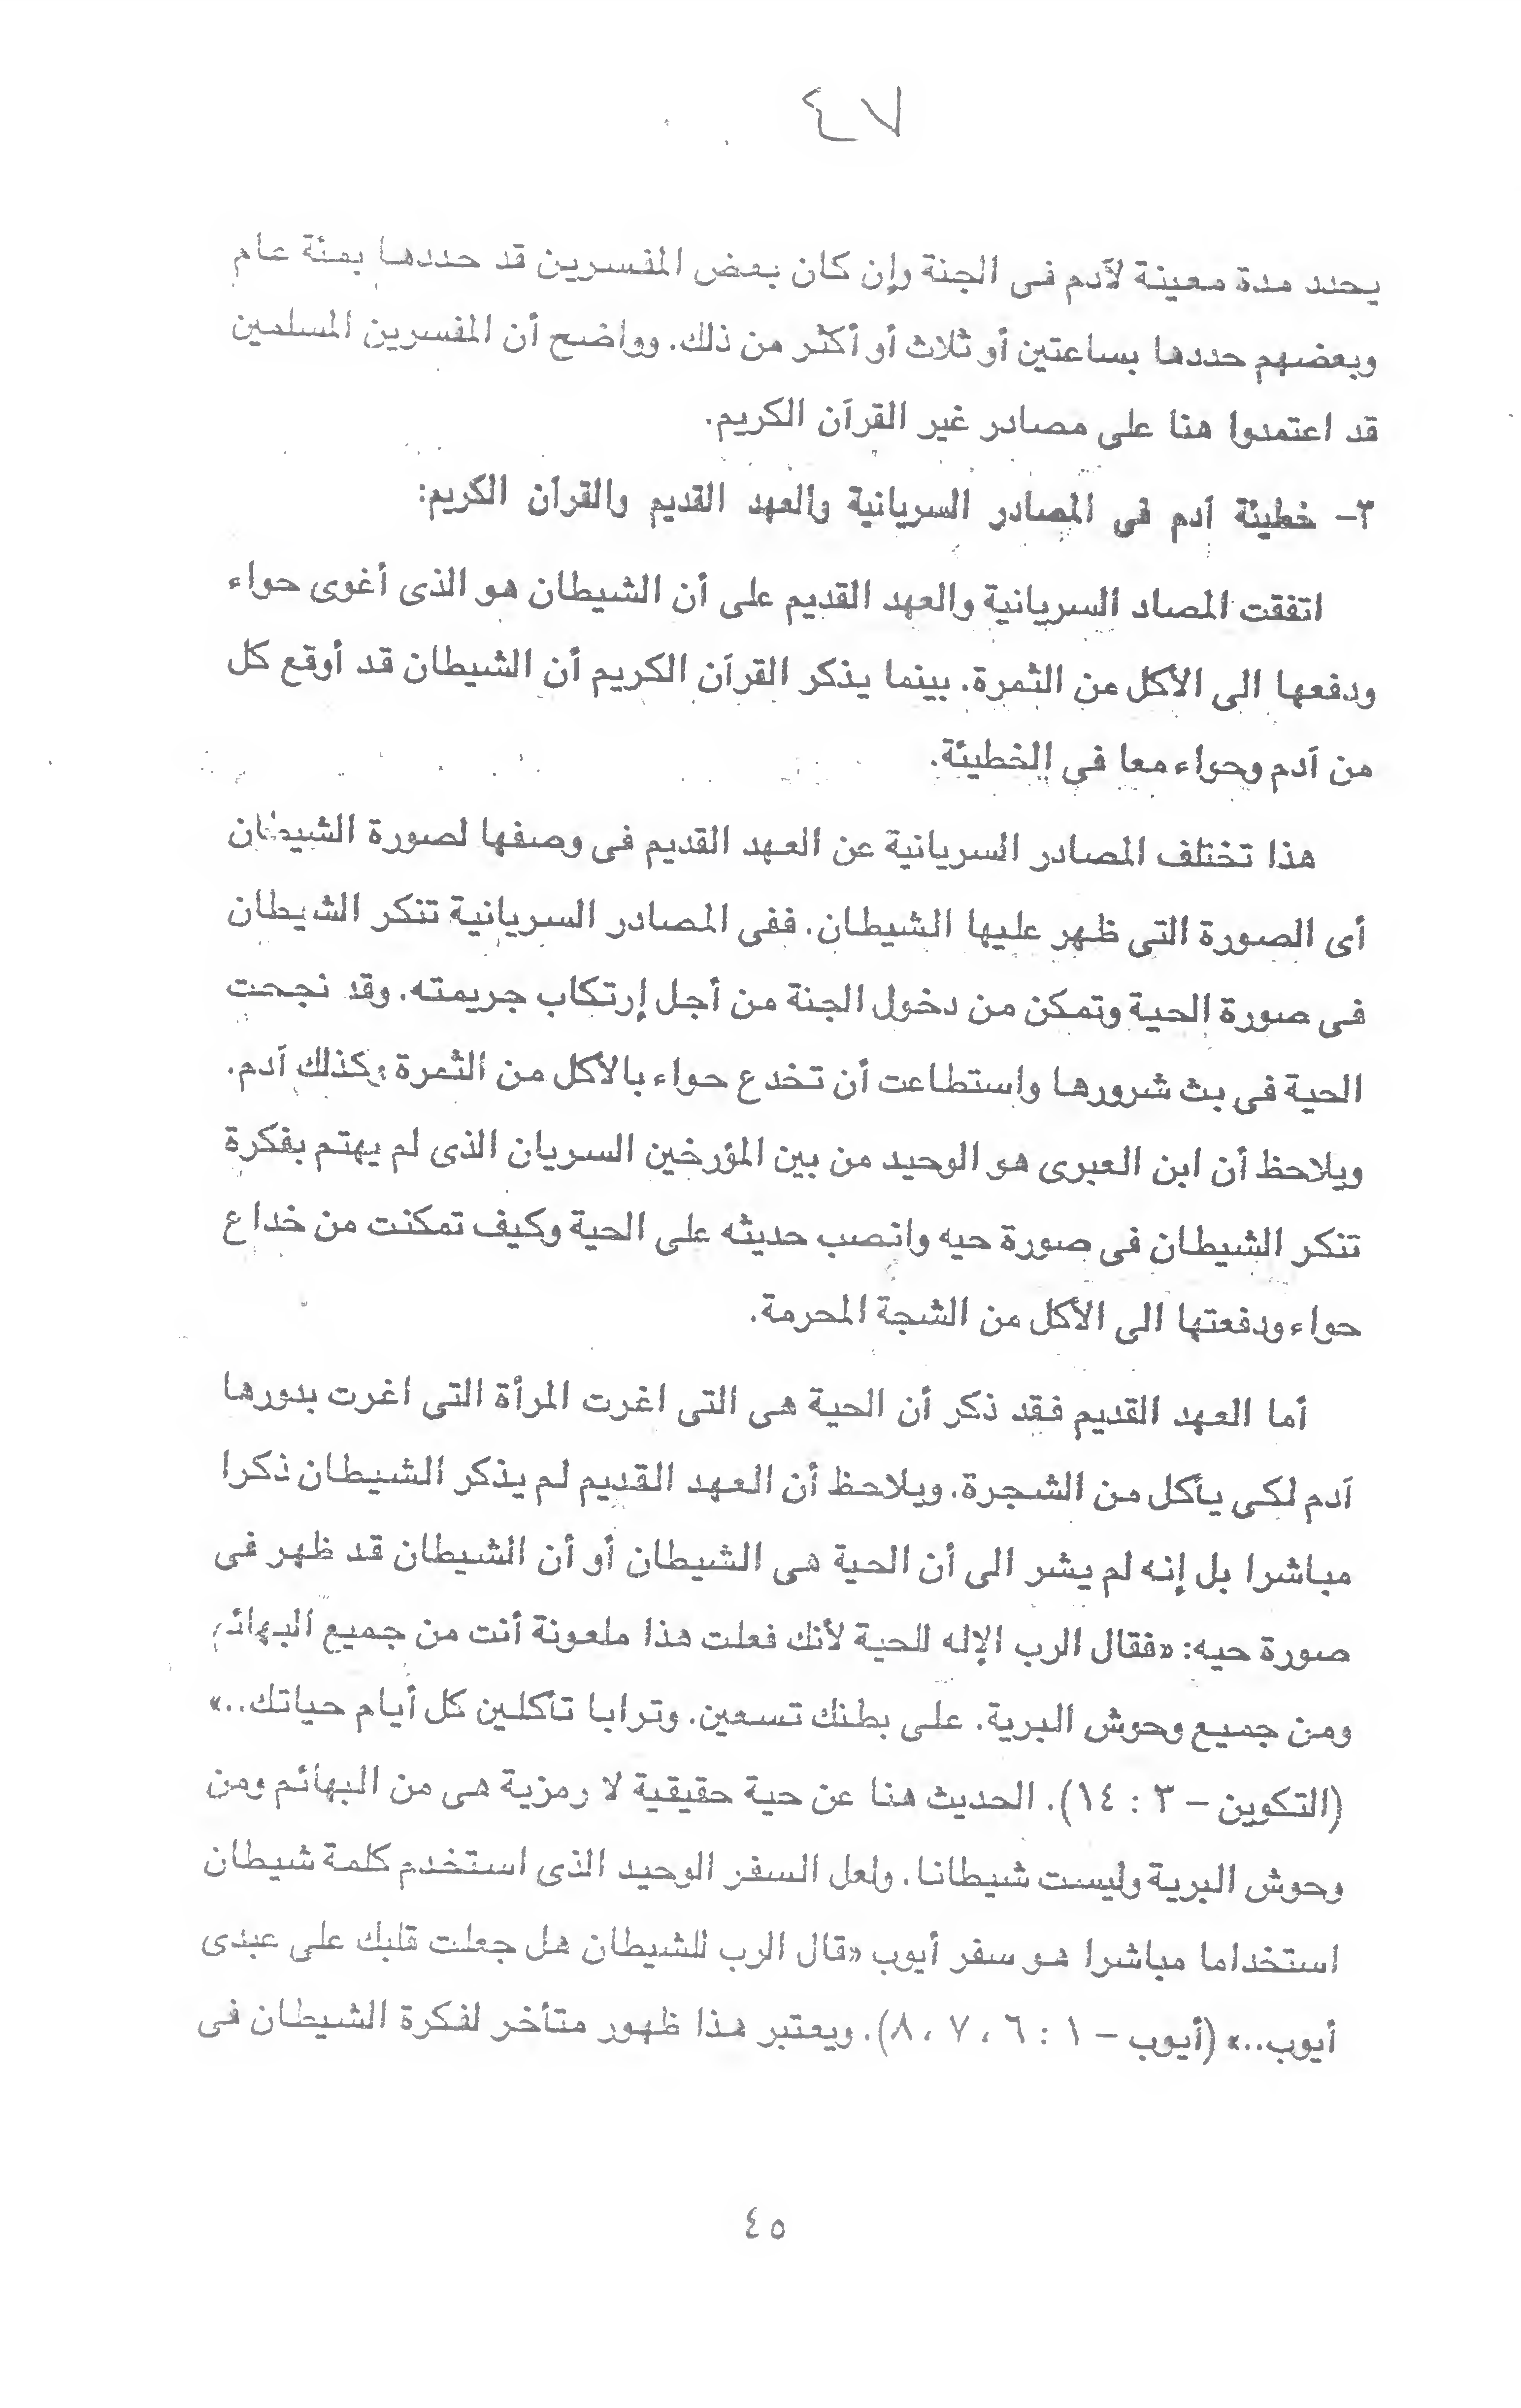 ٧٤
يحدد مدة معينة لآدم فى الجنة وإن كان بعض المفسرين قد حددها بمئة عام
وبعضهم حددها بساعتين أو ثلاث أو أكثر من ذلك. وواضح أن المفسرين المسلمين
قد اعتمدوا هنا على مصادر غير القرآن الكريم.
٣- خطيئة آدم فى المصادر السريانية والعهد القديم والقرآن الكريم:
اتفقت المصاد السريانية والعهد القديم على أن الشيطان هو الذى أغوى حواء
ودفعها الى الأكل من الثمرة. بينما يذكر القرآن الكريم أن الشيطان قد أوقع كل
من آدم وحواء معا فى الخطيئة.
هذا تختلف المصادر السريانية عن العهد القديم فى وصفها لصورة الشيطان
أى الصورة التى ظهر عليها الشيطان. ففى المصادر السريانية تنكر الشيطان
فى صورة الحية وتمكن من دخول الجنة من أجل إرتكاب جريمته. وقد نجحت
الحية فى بث شرورها واستطاعت أن تخدع حواء بالأكل من الثمرة وكذلك آدم.
ويلاحظ أن ابن العبرى هو الوحيد من بين المؤرخين السريان الذى لم يهتم بفكرة
تنكر الشيطان فى صورة حيه وانصب حديثه على الحية وكيف تمكنت من خداع
حواء ودفعتها الى الأكل من الشجة المحرمة.
أما العهد القديم فقد ذكر أن الحية هى التى اغرت المرأة التى اغرت بدورها
آدم لكى يأكل من الشجرة. ويلاحظ أن العهد القديم لم يذكر الشيطان ذكرا
مباشرا بل إنه لم يشر الى أن الحية هى الشيطان أو أن الشيطان قد ظهر فى
صورة حيه: «فقال الرب الإله للحية لأنك فعلت هذا ملعونة أنت من جميع البهائم
ومن جميع وحوش البرية. على بطنك تسعين. وترابا تأكلين كل أيام حياتك..»
(التكوين – ٣ : ١٤). الحديث هنا عن حية حقيقية لا رمزية هى من البهائم ومن
وحوش البرية وليست شيطانا. ولعل السفر الوحيد الذى استخدم كلمة شيطان
استخداما مباشرا هو سفر أيوب «قال الرب للشيطان هل جعلت قلبك على عبدى
أيوب..» (أيوب – ١ : ٦ ، ٧ ، ٨). ويعتبر هذا ظهور متأخر لفكرة الشيطان فى
٤٥